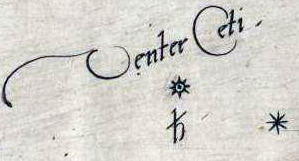 Venter Ceti.
ħ